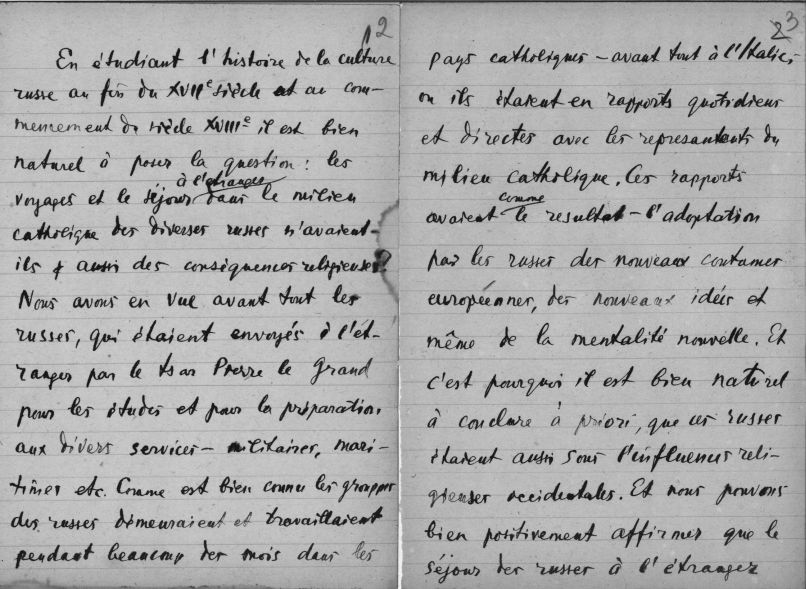 12
En étudiant l'histoire de la culture
russe au fin du XVIIe siècle et au com-
mencement du siècle XVIIIe il est bien
naturel à poser la question: les
à l'étranger
voyages et le séjour dans le milieu
catholique des diverses russes n'avaient-
ils aussi des conséquences religieuses?
Nous avons en vue avant tout les
russes, qui étaient envoyés à l'ét-
ranger par le tsar Pierre le Grand
pour les études et pour la préparation
aux divers services - militaires, mari-
times etc. Comme est bien connu les grouppes
des russes démeuraient et travaillaient
pendant beaucoup des mois dans les
23
pays catholiques - avant tout à l'Italie,
ou ils étaient en rapports quotidiens
et directes avec les represantents du
milieu catholique. Ces rapports
comme
avaient le resultat - l'adoptation
par les russes des nouveaux coutumes
européennes, des nouveaux idées et
même de la mentalité nouvelle. Et
c'est pourquoi il est bien naturel
à conclure à priori, que ces russes
étaient aussi sous l'influences reli-
gieuses occidentales. Et nous pouvons
bien positivement affirmer que le
séjour des russes à l'étranger